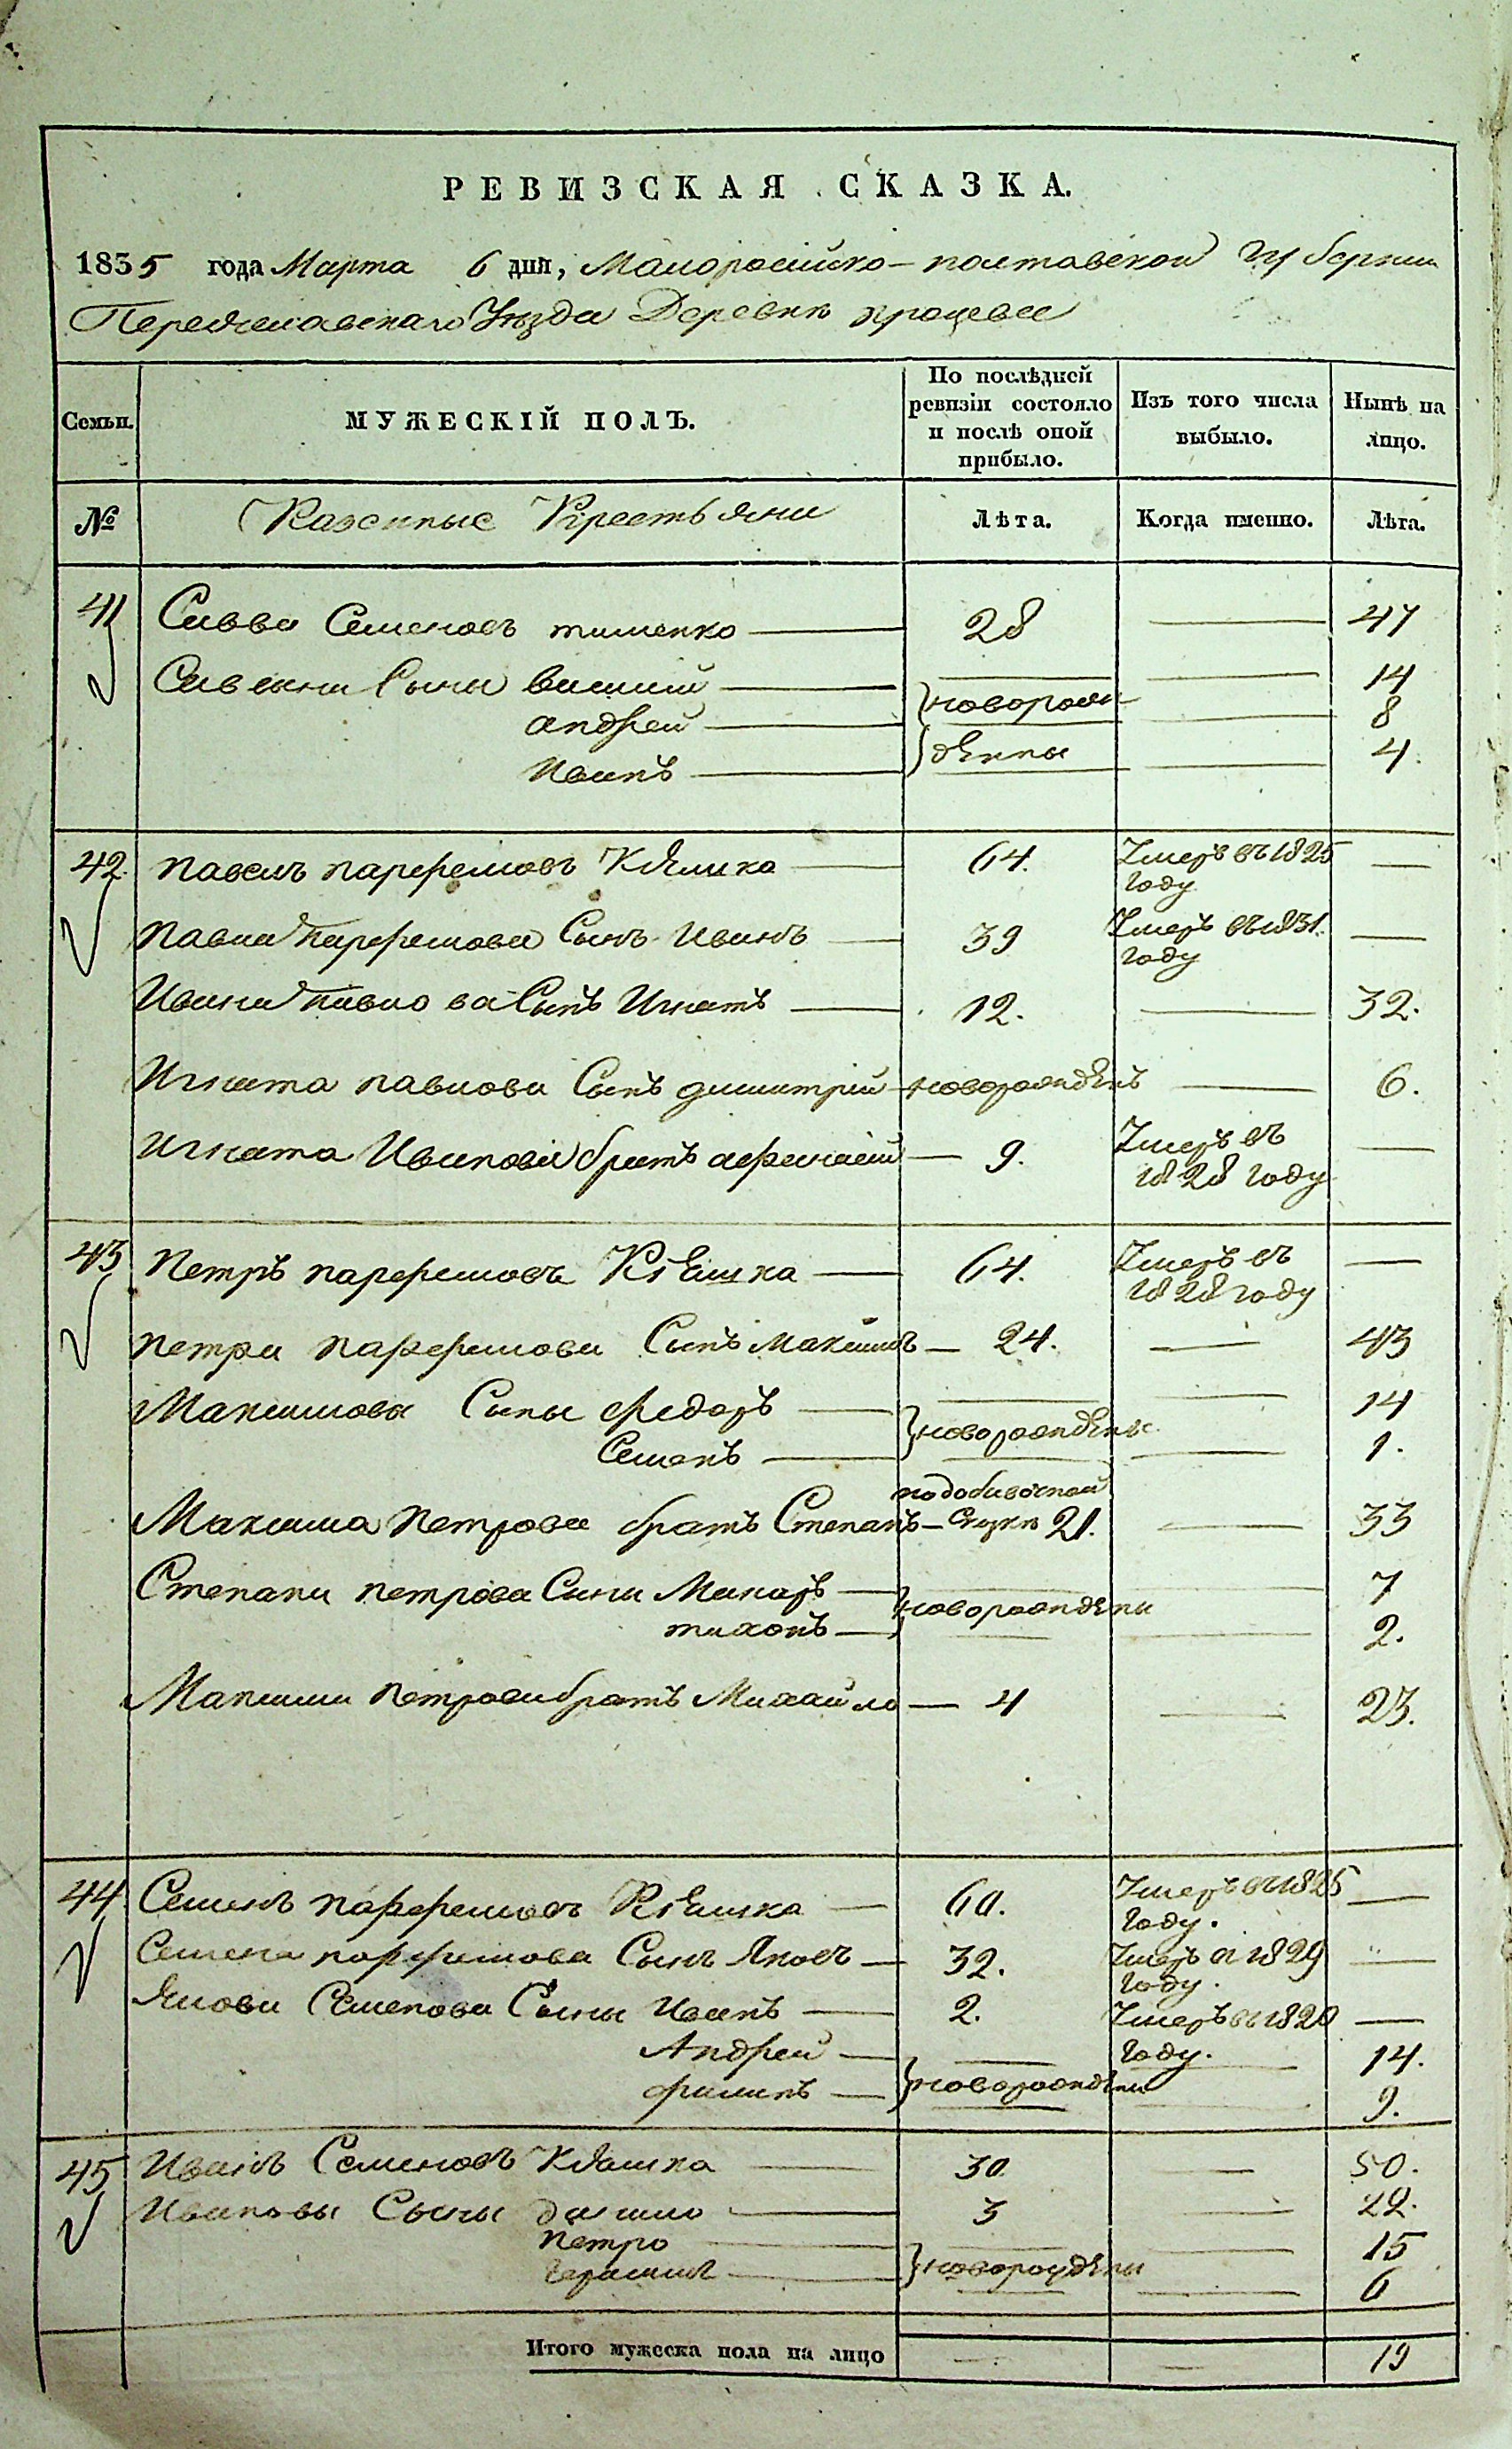 РЕВИЗСКАЯ СКАЗКА.
1835 года Марта 6 дня, Малоросийско-полтавской Губернии
Переяславскаго Уезда Деревни процевки
Семьи.
МУЖЕСКІЙ ПОЛЪ.
По послѣдней ревизіи состояло и послѣ оной прибыло.
Изъ того числа выбыло.
Нынѣ на лицо.
№ Казенные Крестьяни Лѣта. Когда именно. Лѣта.
41 Савва Семеновъ тименко 28 — 47
Саввины Сыны василий — 14
новорож
андрей — 8
денны
Иванъ — 4.
42. павелъ парфемовъ Кляшка 64. Умеръ въ 1825 году —
павла парфемова Сынъ Иванъ 39 Умеръ въ 1831. году —
Ивана павлова Сынъ Игнатъ 12. — 32.
Игната павлова Сынъ димитрий новорожденъ — 6.
Игната Иванова братъ афанасий 9. Умеръ въ 1828 году —
43 Петръ парфемовъ Кляшка 64. Умеръ въ 1828 году —
петра парфемова Сынъ Максимъ 24. — 43
Максимова Сыны федоръ — 14
новорождены
Семенъ — 1.
подобавочной
Максима петрова братъ Степанъ — Сказки 21. — 33
Степана петрова Сыны Макаръ — 7
новорождены
тихонъ — 2.
Максима петрова братъ Михайло — 4 — 23.
44 Семенъ парфемовъ Кляшка 60. Умеръ въ 1825 году. —
Семена парфемова Сынъ Яковъ 32. Умеръ в 1829 году. —
Якова Семенова Сыны Иванъ 2. Умеръ въ 1820 году. —
Андрей — 14.
новорождены
филипъ — 9.
45 Иванъ Семеновъ Кляшка 30 — 50.
Ивановы Сыны данило 3 — 22.
петро — 15
новорождены
герасимъ — 6
Итого мужеска пола на лицо — — 19